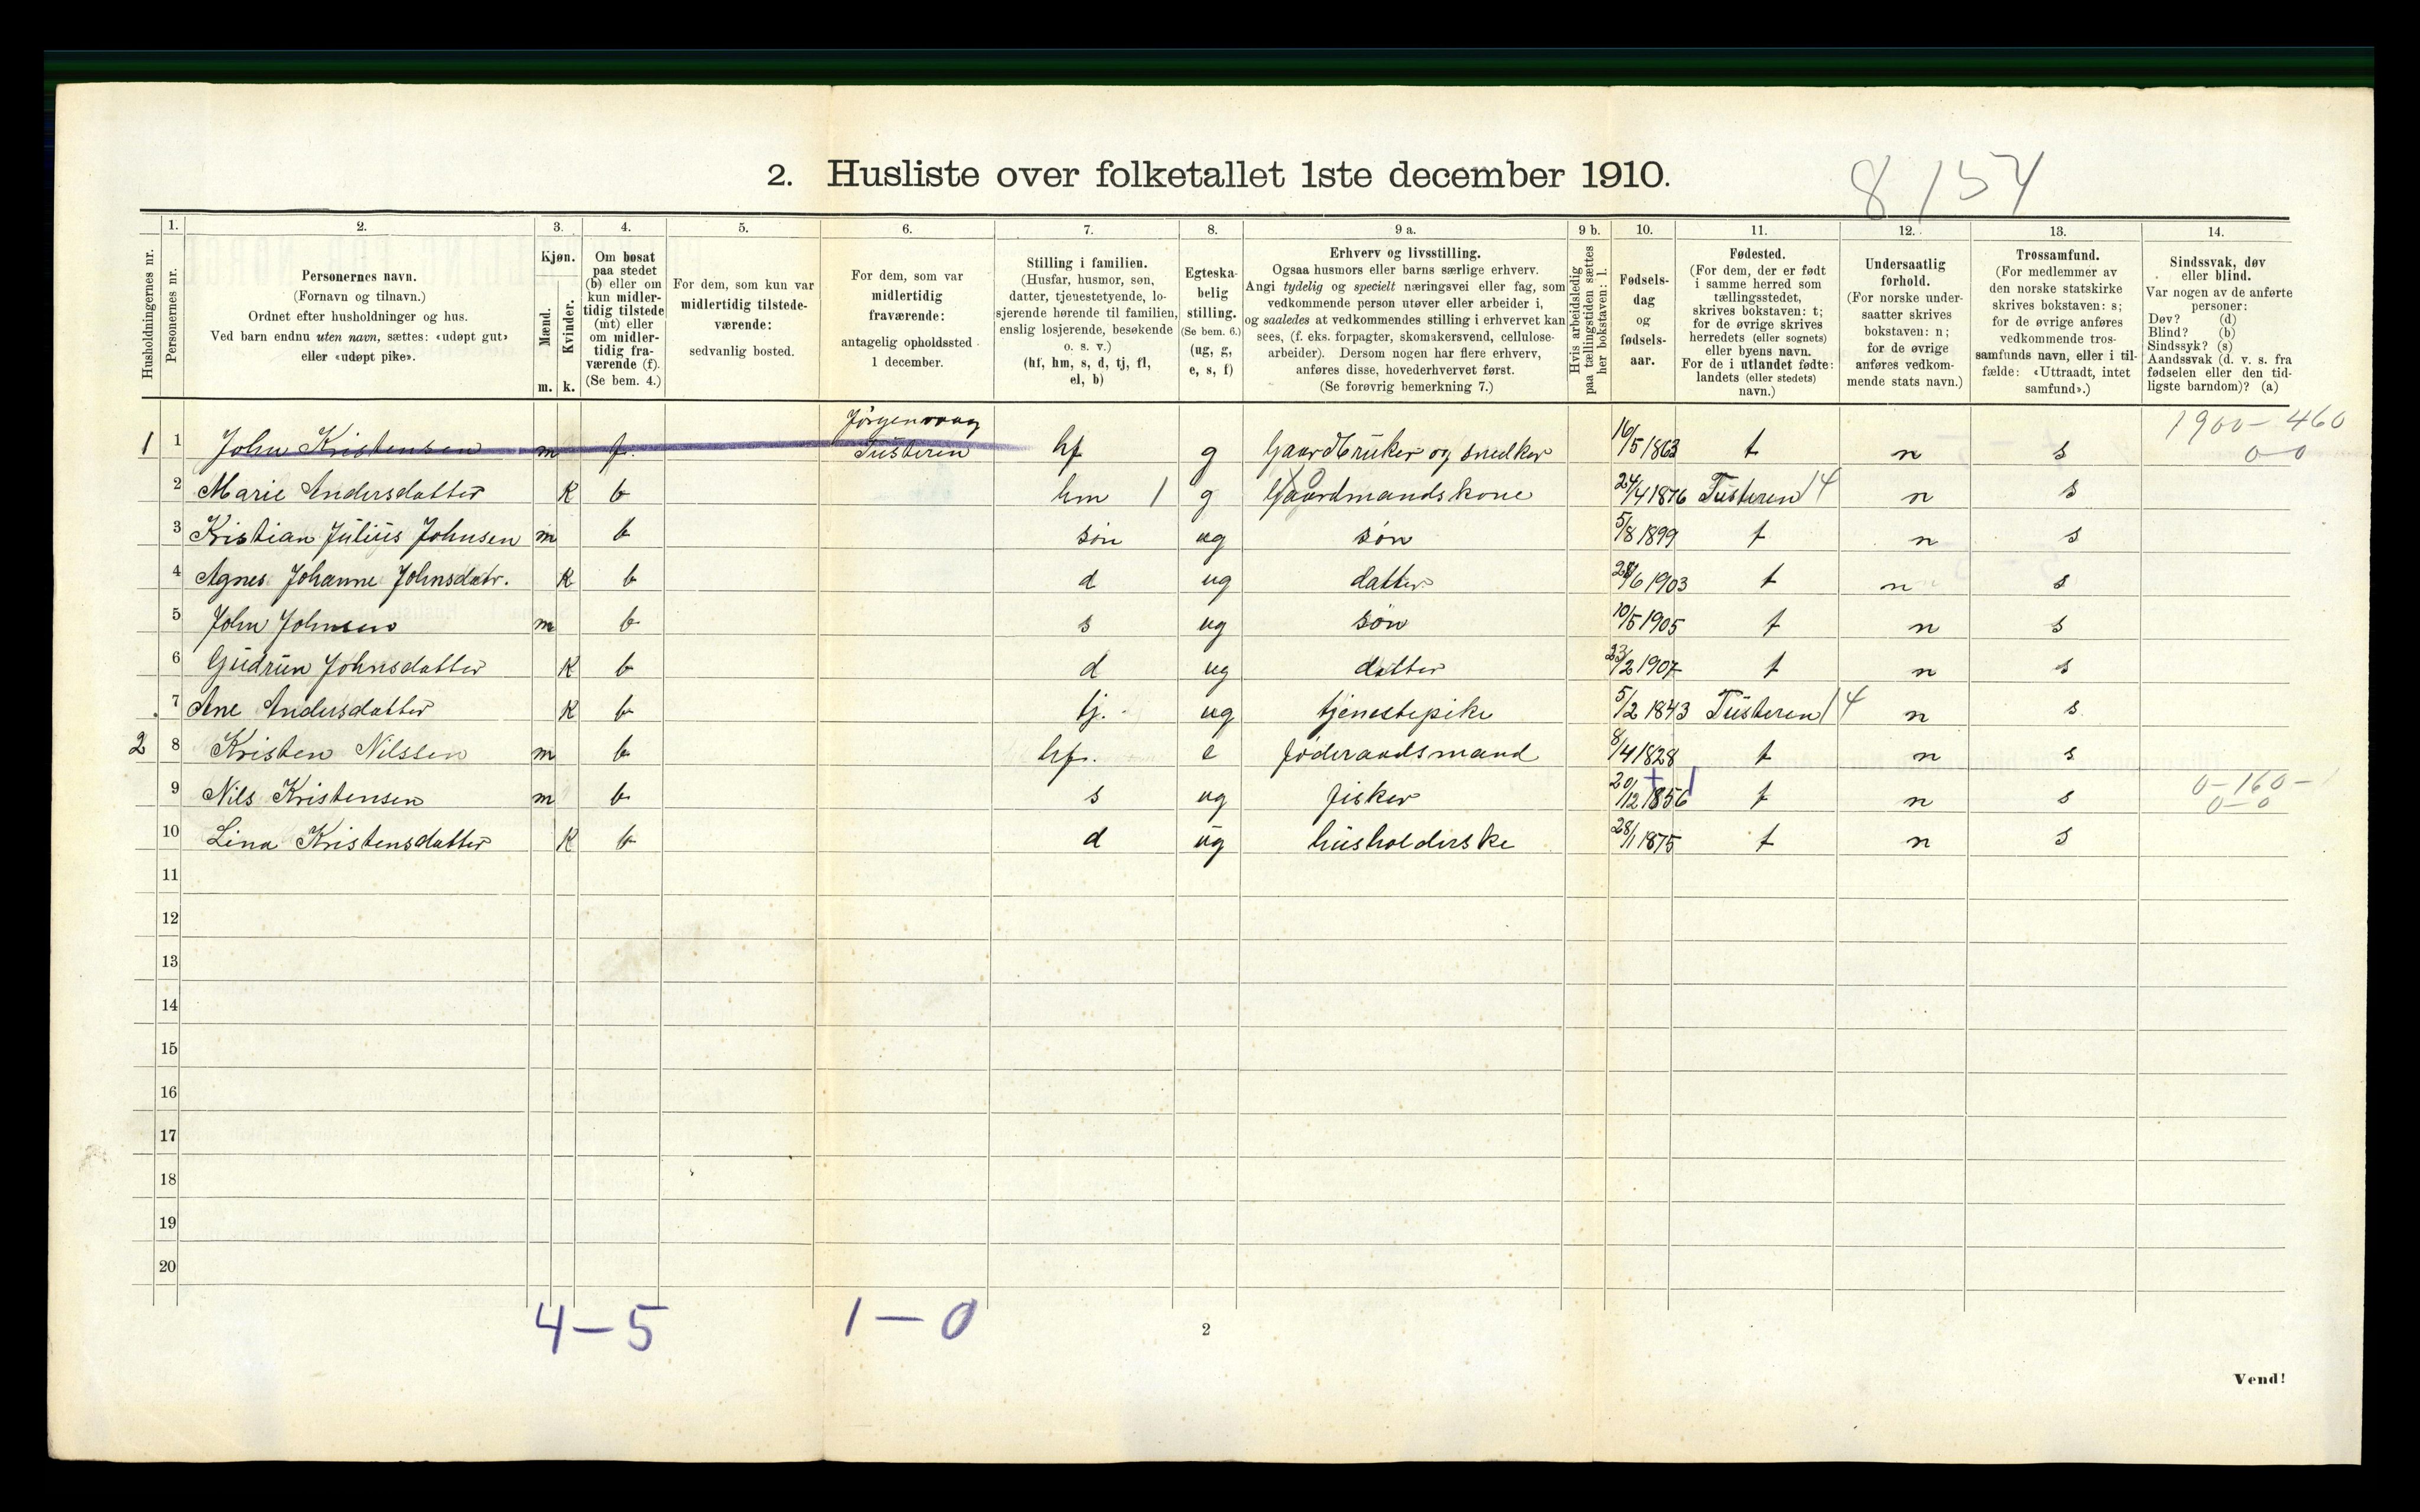 2. Husliste over folketallet 1ste december 1910.
8 154
Husholdningernes nr.
1.
Personernes nr.
2.
Personernes navn.
(Fornavn og tilnavn.)
Ordnet efter husholdninger og hus.
Ved barn endnu uten navn, sættes: «udøpt gut»
eller «udøpt pike».
3.
Kjøn.
Mænd.
Kvinder.
m. k.
4.
Om bosat
paa stedet
(b) eller om
kun midler-
tidig tilstede
(mt) eller
om midler-
tidig fra-
værende (f).
(Se bem. 4.)
5.
For dem, som kun var
midlertidig tilstede-
værende:
sedvanlig bosted.
6.
For dem, som var
midlertidig
fraværende:
antagelig opholdssted
1 december.
7.
Stilling i familien.
(Husfar, husmor, søn,
datter, tjenestetyende, lo-
sjerende hørende til familien,
enslig losjerende, besøkende
o. s. v.)
(hf, hm, s, d, tj, fl,
el, b)
8.
Egteska-
belig
stilling.
(Se bem. 6.)
(ug, g,
e, s, f)
9 a.
Erhverv og livsstilling.
Ogsaa husmors eller barns særlige erhverv.
Angi tydelig og specielt næringsvei eller fag, som
vedkommende person utøver eller arbeider i,
og saaledes at vedkommendes stilling i erhvervet kan
sees, (f. eks. forpagter, skomakersvend, cellulose-
arbeider). Dersom nogen har flere erhverv,
anføres disse, hovederhvervet først.
(Se forøvrig bemerkning 7.)
9 b.
Hvis arbeidsledig
paa tællingstiden sættes
her bokstaven: l.
10.
Fødsels-
dag
og
fødsels-
aar.
11.
Fødested.
(For dem, der er født
i samme herred som
tællingsstedet,
skrives bokstaven: t;
for de øvrige skrives
herredets (eller sognets)
eller byens navn.
For de i utlandet fødte:
landets (eller stedets)
navn.)
12.
Undersaatlig
forhold.
(For norske under-
saatter skrives
bokstaven: n;
for de øvrige
anføres vedkom-
mende stats navn.)
13.
Trossamfund.
(For medlemmer av
den norske statskirke
skrives bokstaven: s;
for de øvrige anføres
vedkommende tros-
samfunds navn, eller i til-
fælde: «Uttraadt, intet
samfund».)
14.
Sindssvak, døv
eller blind.
Var nogen av de anførte
personer:
Døv? (d)
Blind? (b)
Sindssyk? (s)
Aandssvak (d. v. s. fra
fødselen eller den tid-
ligste barndom)? (a)
Jørgenvaag 1900 - 460
1 1 John Kristensen m f. Tusteren hf g Gaardbruker og snedker 16/5 1863 t n s 0-0
2 Marie Andersdatter K b hm 1 g Gaardmandskone 24/4 1876 Tusteren 14 n s
3 Kristian Julius Johnsen m b søn ug søn 5/8 1899 t n s
4 Agnes Johanne Johnsdatr. K b d ug datter /6 1903 t n s
5 John Johnsen m b s ug søn 10/5 1905 t n s
6 Gudrun Johnsdatter K b d ug datter 23/2 1907 t n s
7 Ane Andersdatter K b tj. ug tjenestepike 5/2 1843 Tusteren 14 n s
2 8 Kristen Nilssen m b hf. e føderaadsmand 8/4 1828 t n s
9 Nils Kristensen m b s ug fisker 20/12 1856 t n s 0-160-1
0-0
10 Lina Kristensdatter K b d ug husholderske 28/1 1875 t n s
11
12
13
14
15
16
17
18
19
20
4-5 1-0
2
Vend!